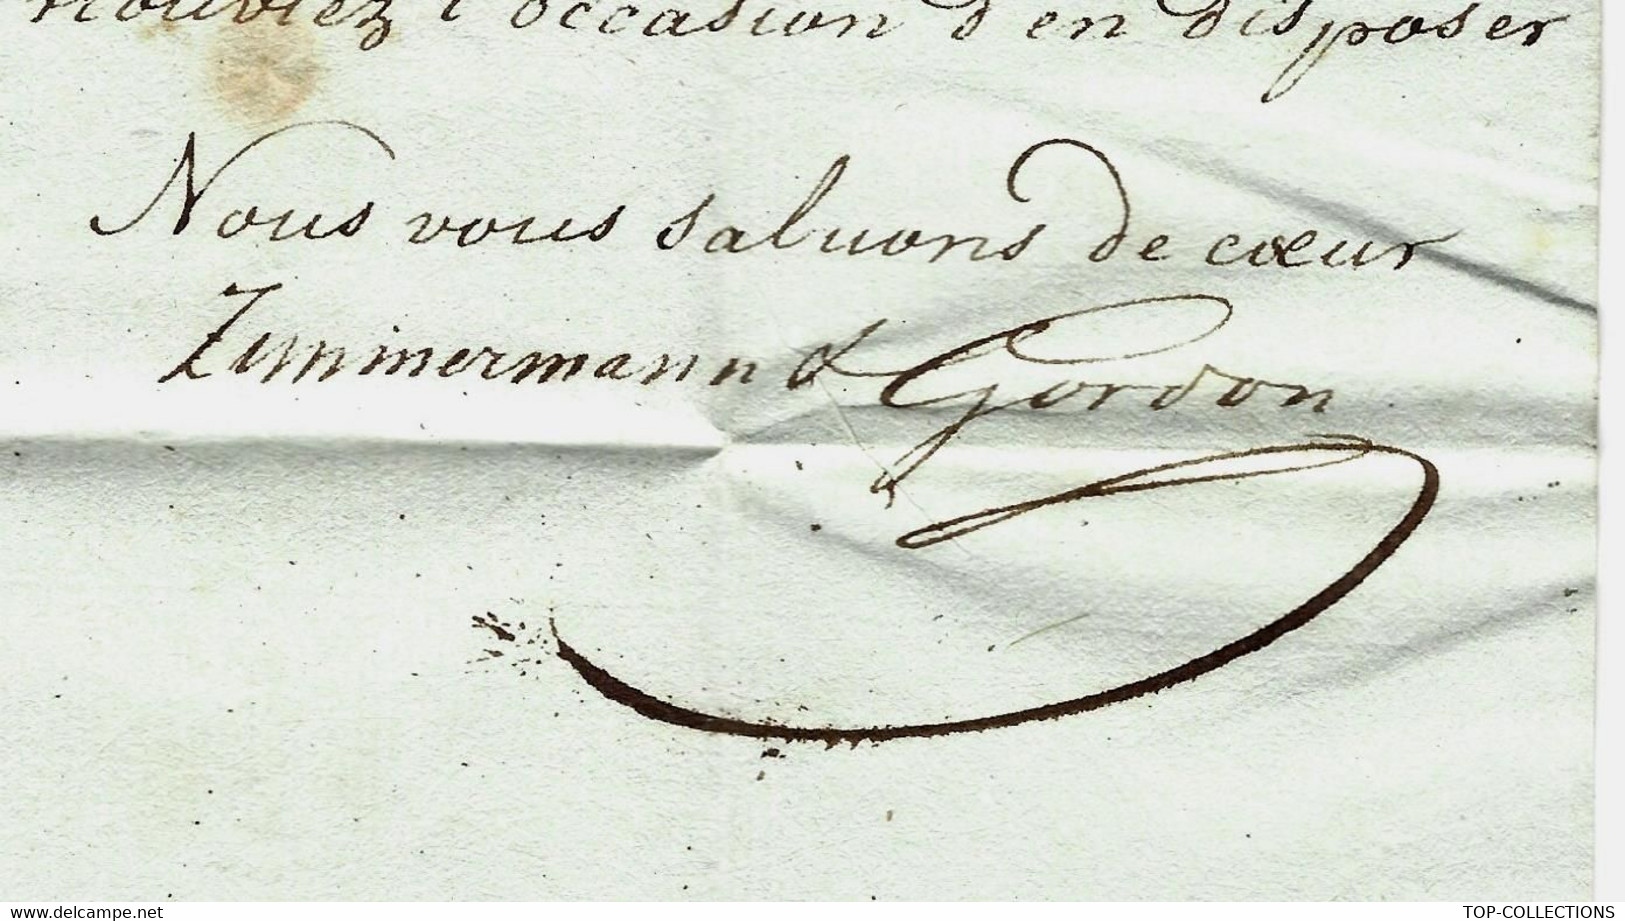 trouviez l'occasion d'en disposer
Nous vous saluons de cœur
Zimmermann & Gordon
www.delcampe.net
TOP-COLLECTIONS